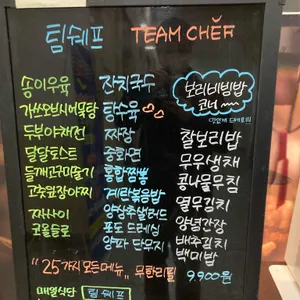 팀쉐프 TEAM CHEF
송이우육
가쓰오부시어묵탕
두부야채전
달달토스트
들깨고구마줄기
고추잎장아찌
짜사이
코울슬로
잔치국수
탕수육
짜장
중화면
홍합짬뽕
계란볶음밥
양상추샐러드
포도 드레싱
양파 단무지
보리비빔밥
코너
찰보리밥
무우생채
콩나물무침
열무김치
양념간장
배추김치
백미밥
"25가지 모든메뉴" 무한리필 9,900원
매일식단 팀쉐프